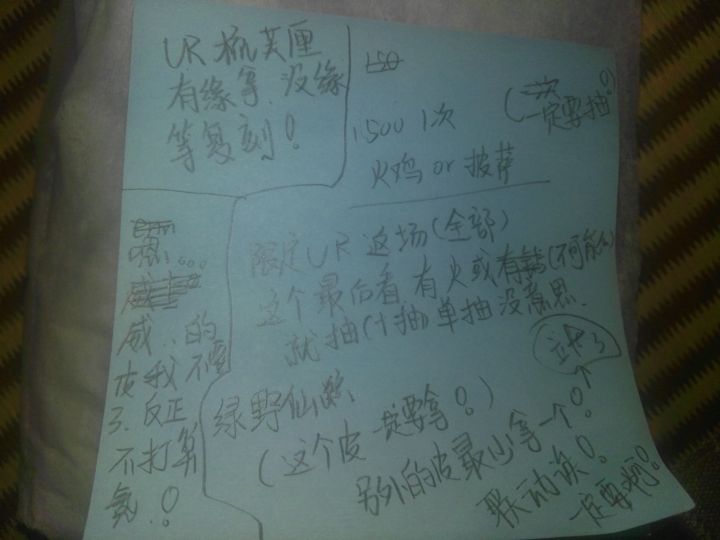 UR 杭芙厘
有缘拿. 没缘
等复刻!
150
(一定要抽!)
1500 1次
火鸡 or 披萨
限定UR 返场(全部)
这个最后看. 有火或有(不可能)
就抽(十抽) 单抽没意思.
嗯...
威..的
皮我不要
了. 反正
不打算
氪.!
绿野仙踪.
(这个皮一定要拿!)
另外的皮最少拿一个!
联动诶!
一定要啊!